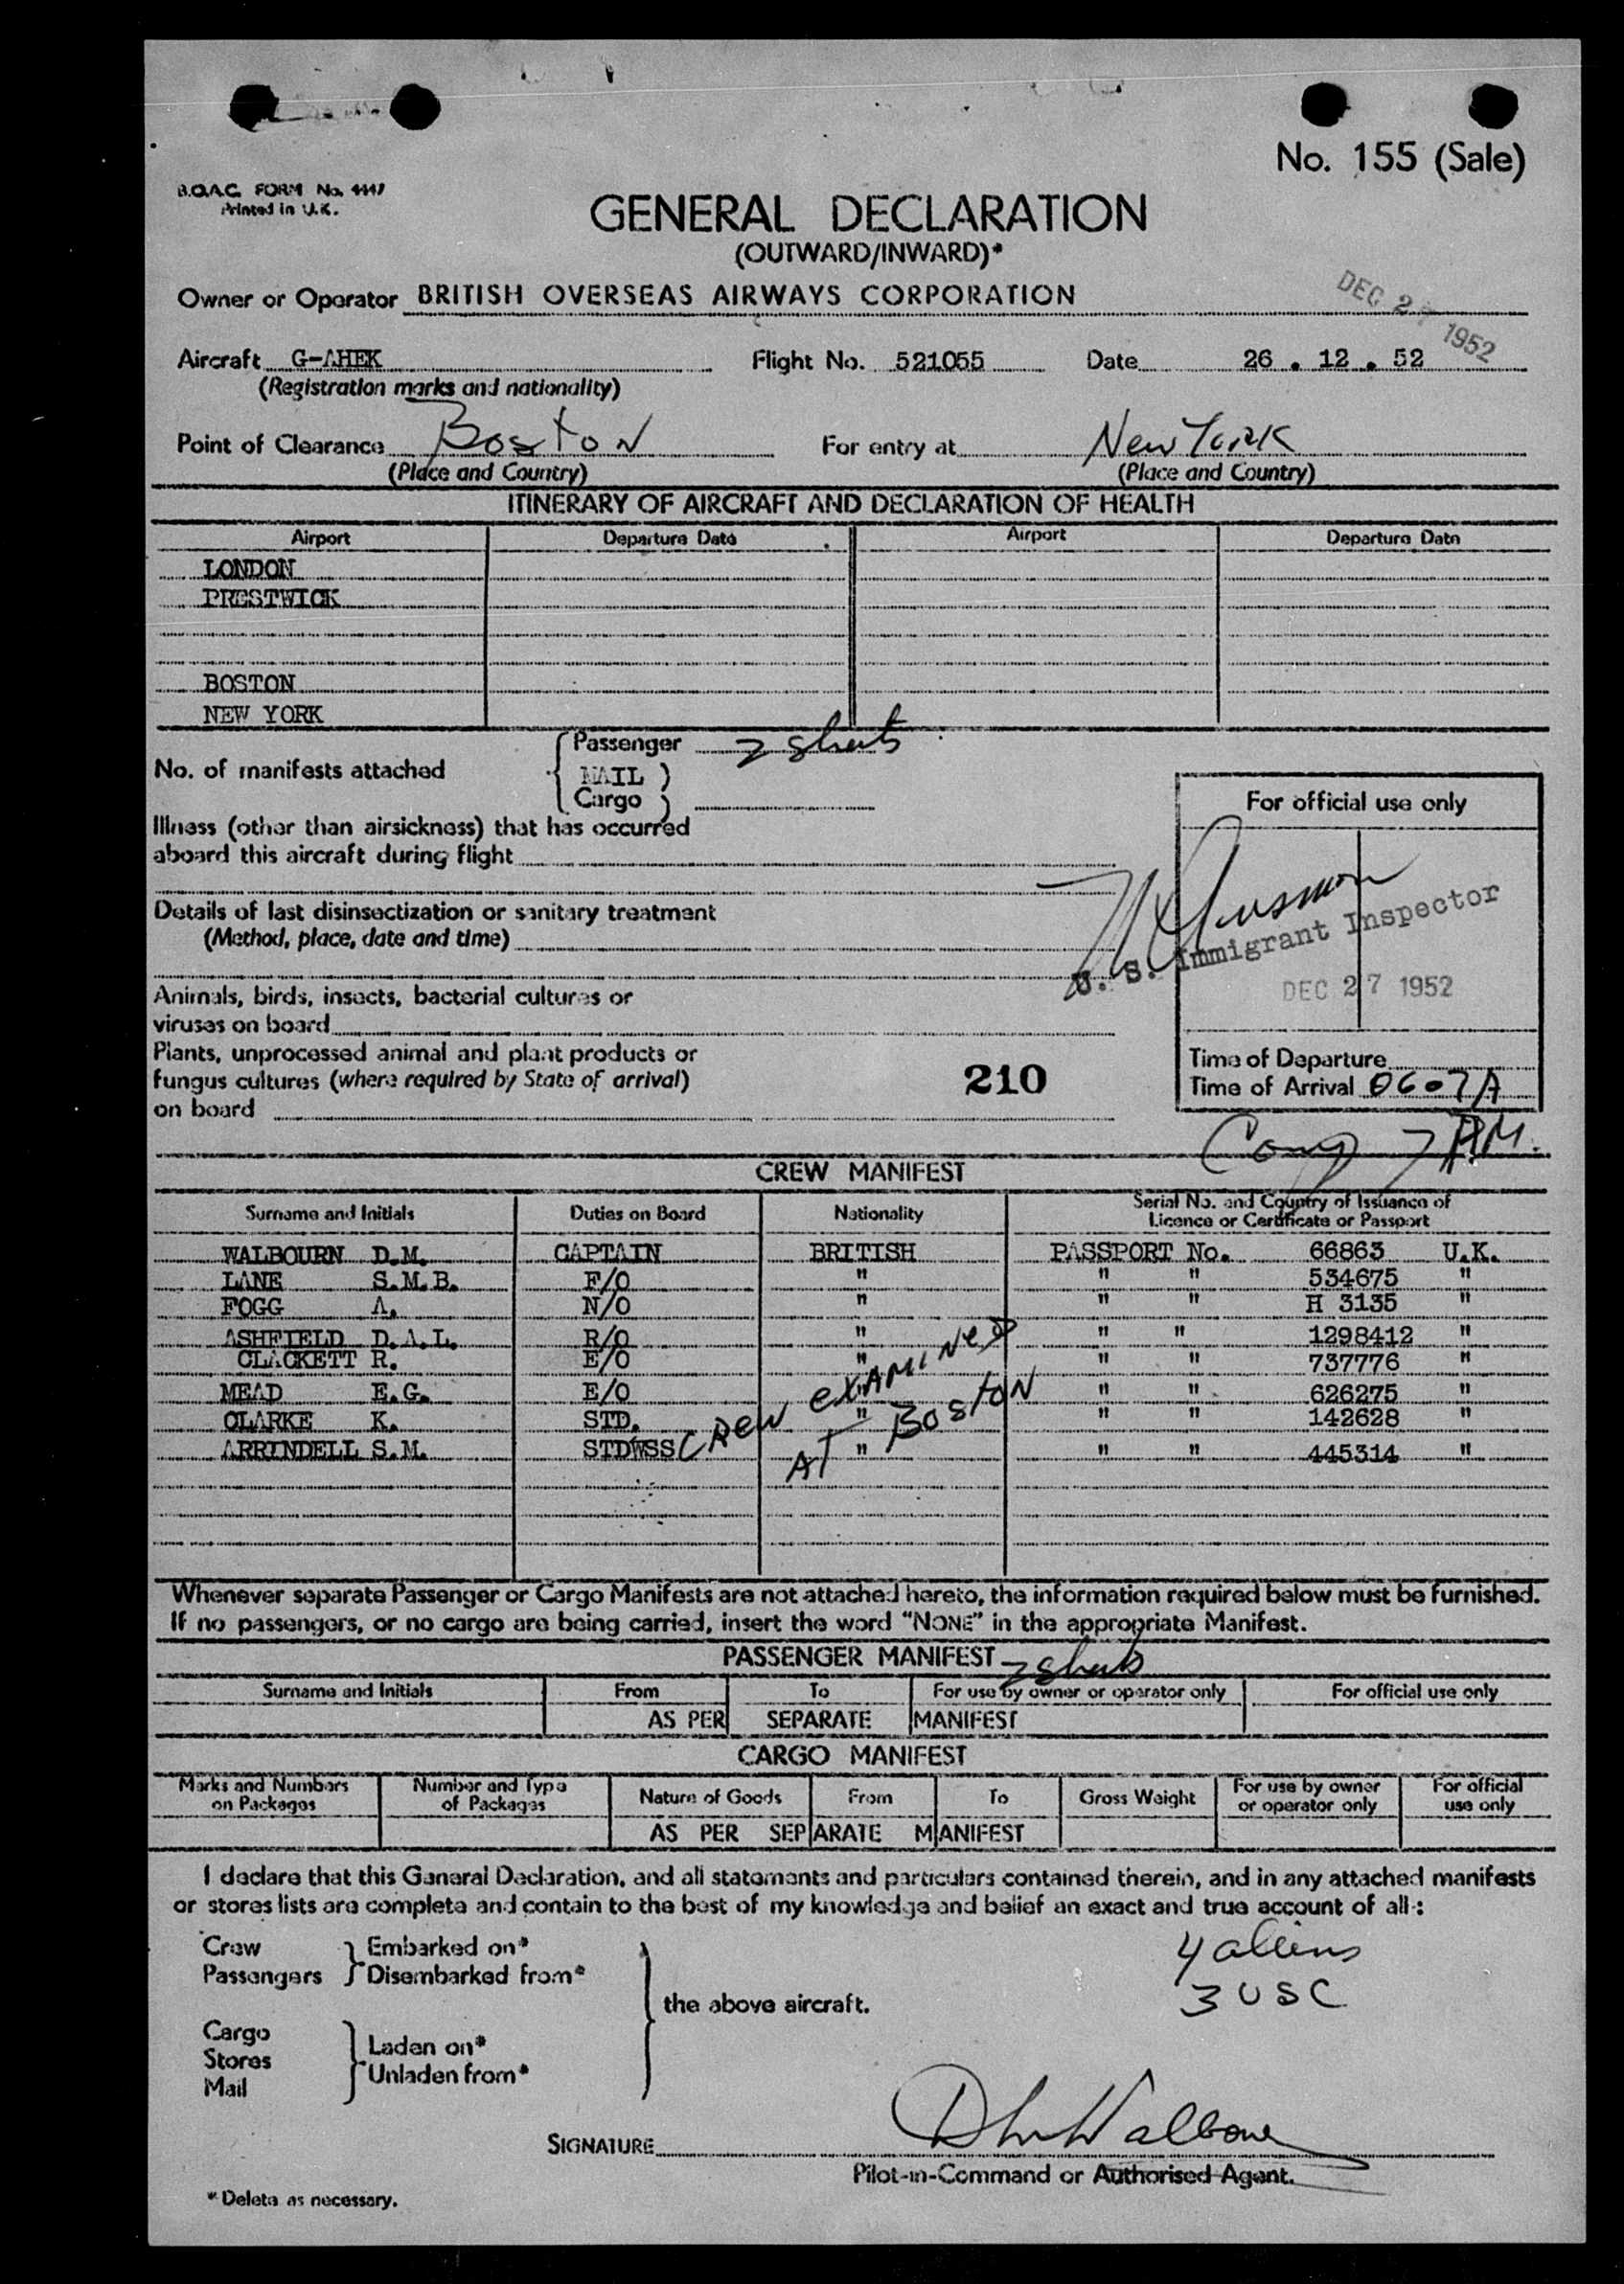 No. 155 (Sale)
B.O.A.C. FORM No. 4447
Printed in U.K.
GENERAL DECLARATION
(OUTWARD/INWARD)*
Owner or Operator BRITISH OVERSEAS AIRWAYS CORPORATION
DEC 27 1952
Aircraft G-AHEK Flight No. 521055 Date 26 . 12 . 52
(Registration marks and nationality)
Point of Clearance Boston For entry at New York
(Place and Country) (Place and Country)
ITINERARY OF AIRCRAFT AND DECLARATION OF HEALTH
Airport Departure Date Airport Departure Date
LONDON
PRESTWICK
BOSTON
NEW YORK
No. of manifests attached
Passenger 2 sheets
MAIL )
Cargo )
Illness (other than airsickness) that has occurred
aboard this aircraft during flight
Details of last disinsectization or sanitary treatment
(Method, place, date and time)
Animals, birds, insects, bacterial cultures or
viruses on board
Plants, unprocessed animal and plant products or
fungus cultures (where required by State of arrival)
on board
210
For official use only
U. S. Immigrant Inspector
DEC 27 1952
Time of Departure
Time of Arrival 0607A
7 AM.
CREW MANIFEST
Surname and Initials Duties on Board Nationality Serial No. and Country of Issuance of Licence or Certificate or Passport
WALBOURN D.M. CAPTAIN BRITISH PASSPORT No. 66863 U.K.
LANE S.M.B. F/O " " " 534675 "
FOGG A. N/O " " " H 3135 "
ASHFIELD D.A.L. R/O " " " 1298412 "
CLACKETT R. E/O " " " 737776 "
MEAD E.G. E/O " " 626275 "
CLARKE K. STD. " " " 142628 "
ARRINDELL S.M. STDWSS " " " 445314 "
CREW EXAMINED
AT BOSTON
Whenever separate Passenger or Cargo Manifests are not attached hereto, the information required below must be furnished.
If no passengers, or no cargo are being carried, insert the word "NONE" in the appropriate Manifest.
PASSENGER MANIFEST 2 sheets
Surname and Initials From To For use by owner or operator only For official use only
AS PER SEPARATE MANIFEST
CARGO MANIFEST
Marks and Numbers on Packages Number and Type of Packages Nature of Goods From To Gross Weight For use by owner or operator only For official use only
AS PER SEPARATE MANIFEST
I declare that this General Declaration, and all statements and particulars contained therein, and in any attached manifests
or stores lists are complete and contain to the best of my knowledge and belief an exact and true account of all :
Crew Embarked on*
Passengers Disembarked from*
the above aircraft.
Cargo
Stores
Mail
Laden on*
Unladen from*
4 aliens
3 USC
SIGNATURE D M Walbourn
Pilot-in-Command or Authorised Agent.
* Delete as necessary.